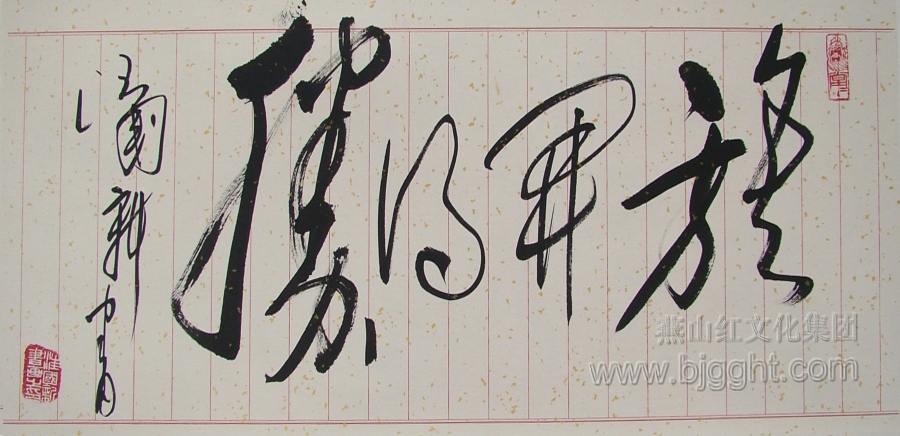 旗開得勝
汪國新
汪國新
書畫之印
燕山红文化集团
www.bjgght.com